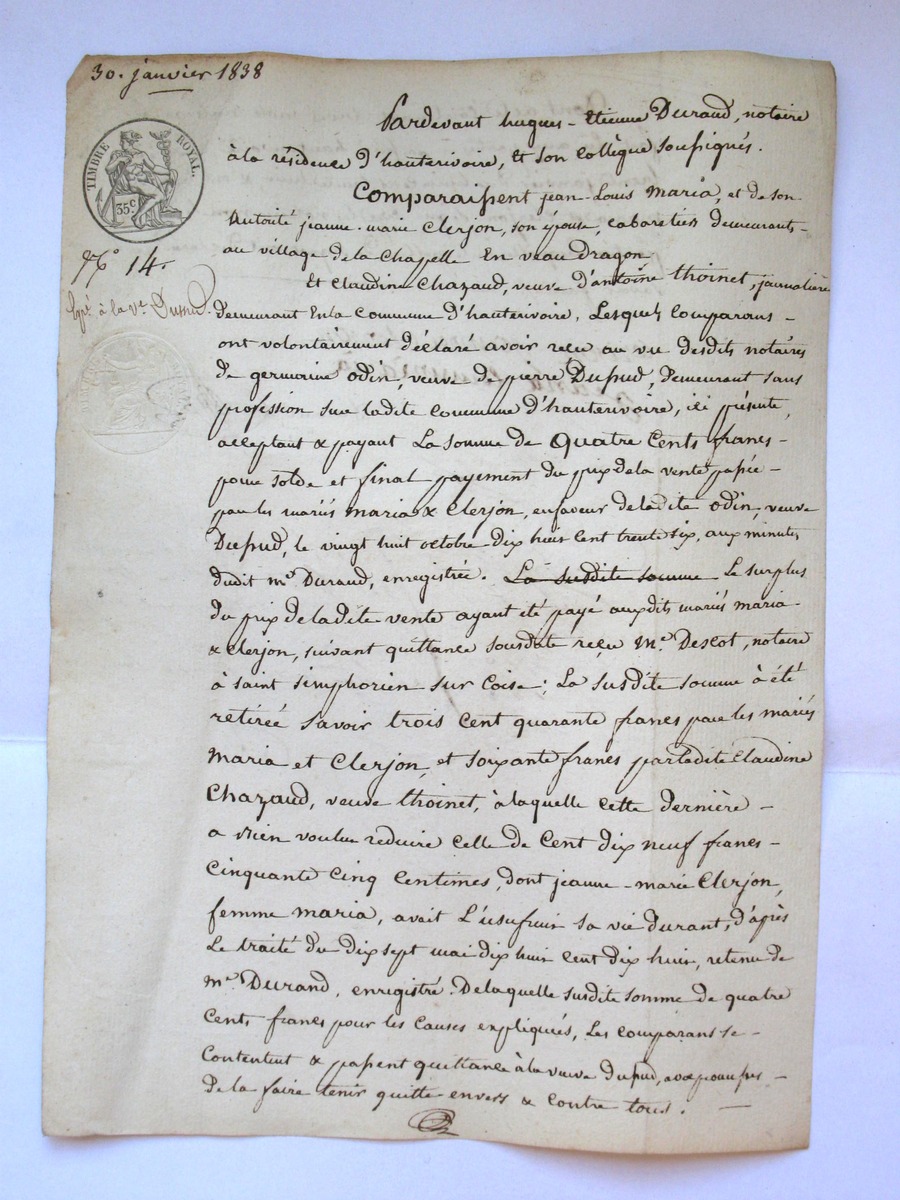 30. janvier 1838
Pardevant hugues-Etienne Durand, notaire
à la résidence d'hauterivoire, et son collègue soussignés.
TIMBRE ROYAL.
35 c
Comparaissent jean-Louis Maria, et de son
autorité jeanne-marie Clerjon, son épouse, cabaretiers demeurants
au village de la Chapelle En vaudragon
N° 14.
Et Claudine Chazaud, veuve d'antoine Thoinet, journalière
Expé à la ve Dupud.
demeurant En la Commune d'hauterivoire, Lesquels Comparans
ont volontairement déclaré avoir reçu au vu desdits notaires
de germaine odin, veuve de pierre Dupud, demeurant sans
profession sur ladite Commune d'hauterivoire, ici présente,
acceptant & payant La somme de Quatre Cents francs
pour solde et final payement du prix de la vente passée
par les mariés maria & Clerjon, en faveur de ladite odin, veuve
Dupud, le vingt huit octobre dix huit cent trente six, aux minutes
dudit me Durand, enregistrée. La susdite somme Le surplus
du prix de ladite vente ayant été payé auxdits mariés maria
& Clerjon, suivant quittance sousdate reçu Me Descot, notaire
à saint simphorien sur Coise; La susdite somme à été
retirée savoir trois cent quarante francs par les mariés
Maria et Clerjon, et soixante francs par ladite Claudine
Chazaud, veuve thoinet, à laquelle cette dernière
a bien voulu reduire celle de Cent dix neuf francs
Cinquante Cinq Centimes, dont jeanne-marie Clerjon,
femme maria, avait L'usufruit sa vie durant, d'après
Le traité du dix sept mai dix huit cent dix huit, retenu de
Me Durand, enregistré. De laquelle susdite somme de quatre
Cents francs pour les Causes expliquées, Les comparans se
Contentent & passent quittance à la veuve dupud, avec
de la faire tenir quitte envers & Contre tous.